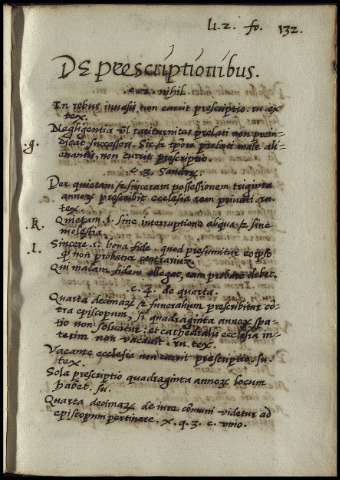 li. 2. fo. 132.
DE prescriptionibus.
c. 2. nihil.
In rebus invasis non currit prescriptio. in ex
tex.
.g. Negligentia vel taciturnitas prelati non prein-
dicat successori. Sic & prelati male ali-
enantis, non currit prescriptio.
c. 3. Sanctor.
Per quietam & sinceram possessionem triginta
annor prescribit ecclesia rem privati. in
tex.
.k. Quietam .i. sine interruptione aliqua & sine
molestia.
.l. Sincere .i. bona fide. quod presumitur eo ipso
non probatur contrarium.
Qui malam fidem allegat, eam probare debet.
c. 4. de quarta.
Quarta decimar & funeralium prescribitur co-
tra episcopum, si quadraginta annor spa-
tio non solvitur: et cathedralis ecclesia in-
terim non vacavit. in tex.
Vacante ecclesia non currit prescriptio. in
tex.
Sola prescriptio quadraginta annor locum
habet. su.
Quarta decimar de iure communi videtur ad
episcopum pertinere. x. q. 3. c. uno.